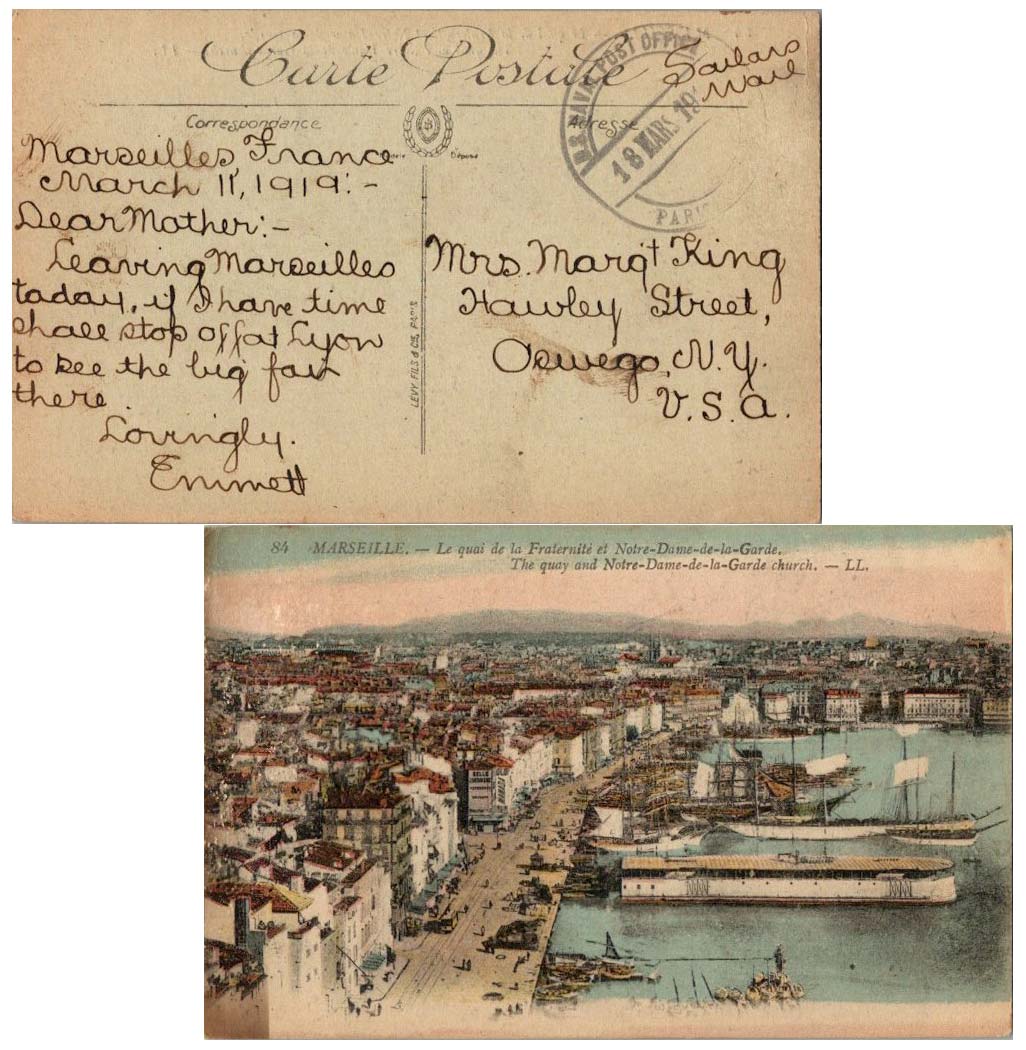 Carte Postale
Sailars
Mail
U.S. NAVAL POST OFFICE
18 MARS 19
PARIS
Correspondance
Adresse
Déposé
Marseilles, France
March 11, 1919:-
Dear Mother:-
Leaving Marseilles
taday, if I have time
shall stop off at Lyon
to see the big fair
there.
Lovingly.
Emmett
LEVY FILS & Cie, PARIS
Mrs. Margt King
Hawley Street,
Oswego, N.Y.
U.S.A.
84 MARSEILLE. — Le quai de la Fraternité et Notre-Dame-de-la-Garde.
The quay and Notre-Dame-de-la-Garde church. — LL.
BELLE
JARDINIERE